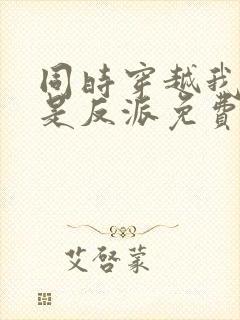 同時穿越我
是反派免費
艾啓蒙